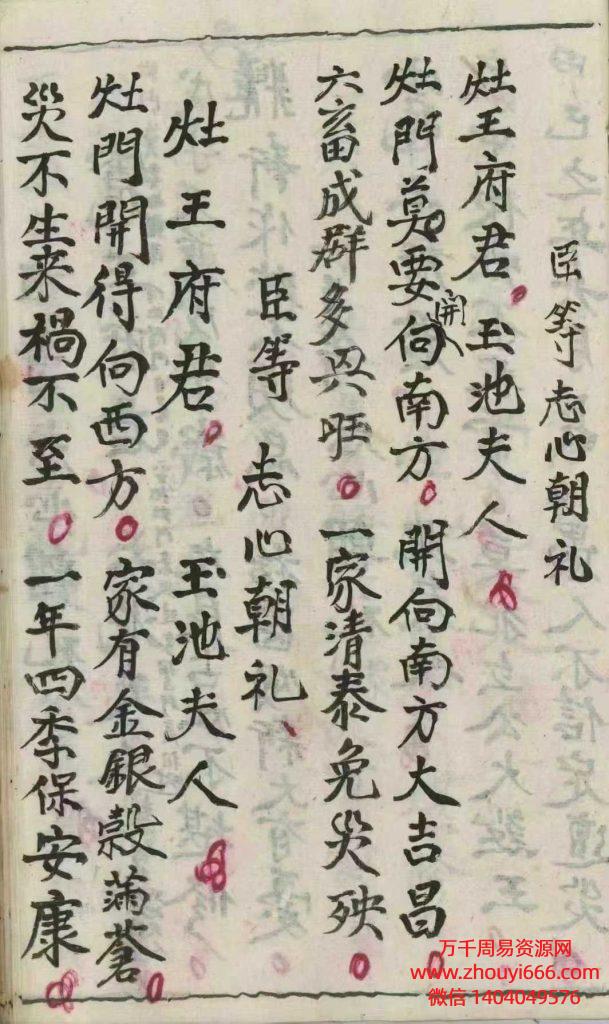 臣等志心朝礼
灶王府君。玉池夫人
灶門莫要開向南方。開向南方大吉昌
六畜成群多兴旺。一家清泰免災殃
臣等 志心朝礼、
灶王府君。玉池夫人
灶門開得向西方。家有金銀穀满蒼
災不生来禍不至。一年四季保安康
万千周易资源网
www.zhouyi666.com
微信 1404049576